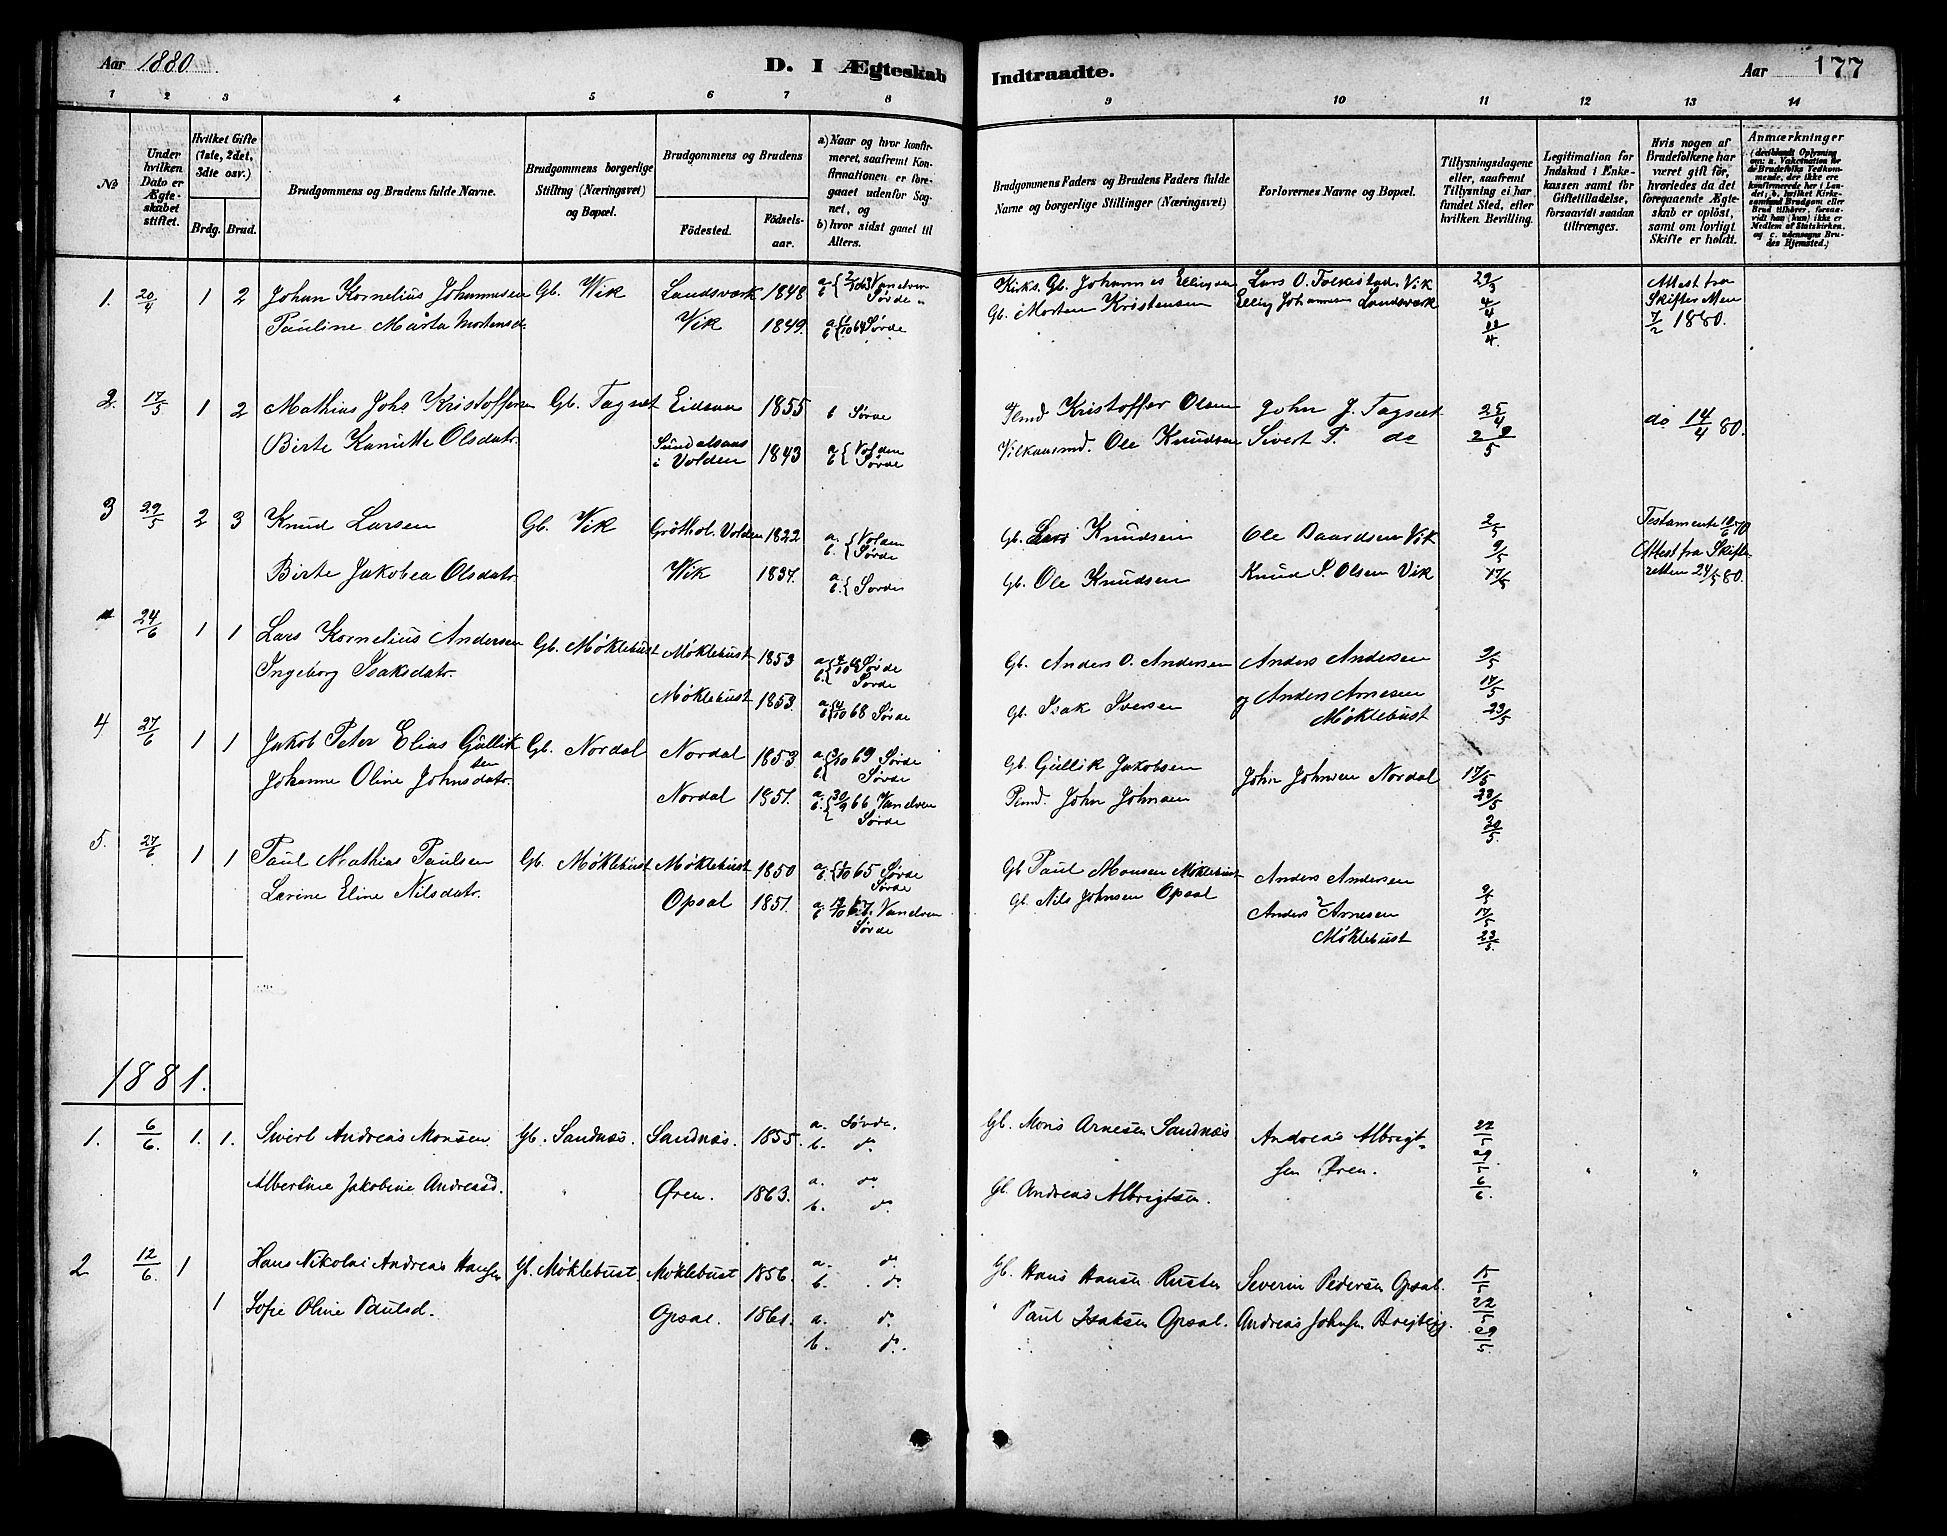 Aar 1880.
D. I Ægteskab Indtraadte.
Aar
177
1 2 3 4 5 6 7 8 9 10 11 12 13 14
No
Under hvilken Dato er Ægteskabet stiftet.
Hvilket Gifte (1ste, 2det, 3die osv.)
Brdg. Brud.
Brudgommens og Brudens fulde Navne.
Brudgommens borgerlige Stilling (Næringsvei) og Bopæl.
Brudgommens og Brudens
Födested. Födselsaar.
a) Naar og hvor konfirmeret, saafremt Konfirmationen er foregaaet udenfor Sognet, og
b) hvor sidst gaaet til Alters.
Brudgommens Faders og Brudens Faders fulde Navne og borgerlige Stillinger (Næringsvei)
Forlovernes Navne og Bopæl.
Tillysningsdagene eller, saafremt Tillysning ei har fundet Sted, efter hvilken Bevilling.
Legitimation for Indskud i Enkekassen samt for Giftetilladelse, forsaavidt saadan tiltrænges.
Hvis nogen af Brudefolkene har været gift för, hvorledes da det foregaaende Ægteskab er oplöst, samt om lovligt Skifte er holdt.
Anmærkninger
1. 20/4 1 2 Johan Kornelius Johannesen Gb. Wik Landsværk 1848 Vanelven Sørde Kirks. Gb. Johannes Ellingsen Lars O. Folkestad Vik 29/3 Attest fra
Pauline Märta Mortensd. Vik 1849. Sørde Gb. Morten Kristensen Elling Johannesen Landsværk 4/4 Skifter
11/4 7/2 1880.
2. 17/5 1 2 Mathias Johs Kristoffersen Gb. Tagset Eidsaa 1855 b Sørde Kristoffer Olsen John J. Tagset 25/4 do 14/4 80.
Birte Kanutte Olsdatr. i Volden 1843 a b { Volden Sørde Ole Knudsen Sivert P. do 2 9/5
3 29/5 2 3 Knud Larsen Gb. Vik Volden 1822 a. b. { Volden Sørde Gb. Lars Knudsen Ole Baardsen Vik 2/5 Testamente
9/5 Attest fra Skifte
Birte Jakobea Olsdatr Wik 1837. a b. { Sørde Gb. Ole Knudsen Knud S. Olsen Vik 17/5 retten 24/5 80.
24/6 1 1 Lars Kornelius Andersen Gb. Møklebust Møklebust 1853 Sørde Sørde Gb. Anders O. Andersen Anders Andersen 9/5
Ingeborg Isaksdatr. Møklebust 1853. 68 Sørde Gb. Isak Iversen og Anders Arnesen 17/5
Møklebust 23/5
4 27/6 1 1 Jakob Peter Elias Gullik Gb. Nordal Nordal 1853 69 Sørde Sørde Gb. Gullik Jakobsen John Johnsen Nordal 17/5
sen
Johanne Oline Johnsdatr. Nordal 1851. 30/9 66 Vanelven Sørde John Johnsen 23/5
30/5.
5. 27/6 1 1 Paul Mathias Paulsen Gb. Møklebust Møklebust 1850 65 Sørde Sørde Gb Paul Monsen Møklebust Anders Andersen 9/5
Lavine Eline Nilsdatr. Opsal 1851. 67. Vanelven Sørde Gb. Nils Johnsen Opsal Anders Arnesen 17/5
Møklebust 23/5.
1881.
1. 6/6. 1. 1. Sivert Andreas Monsen. Gb. Sandnæs. Sandnæs. 1855. a. Sørde. b. do. Gb. Mons Arnesen Sandnæs Andreas Albrigt- 22/5
sen Øren. 29/5
Albertine Jakobine Andreasd. " Øren. 1863. a. do. b. do. Gb. Andreas Albrigtsen. 6/6. " "
2 12/6. 1 Hans Nikolai Andreas Hansen Gb. Møklebust Møklebust 1856. a. do b. do. Gb. Hans Hansen Rusten Severin Pedersen Opsal. 15/5
1 Sofie Oline Paulsd. Opsal. 1861. a. do. b. do. " Paul Isaksen Opsal. Andreas Johnsen 22/5
29/5.